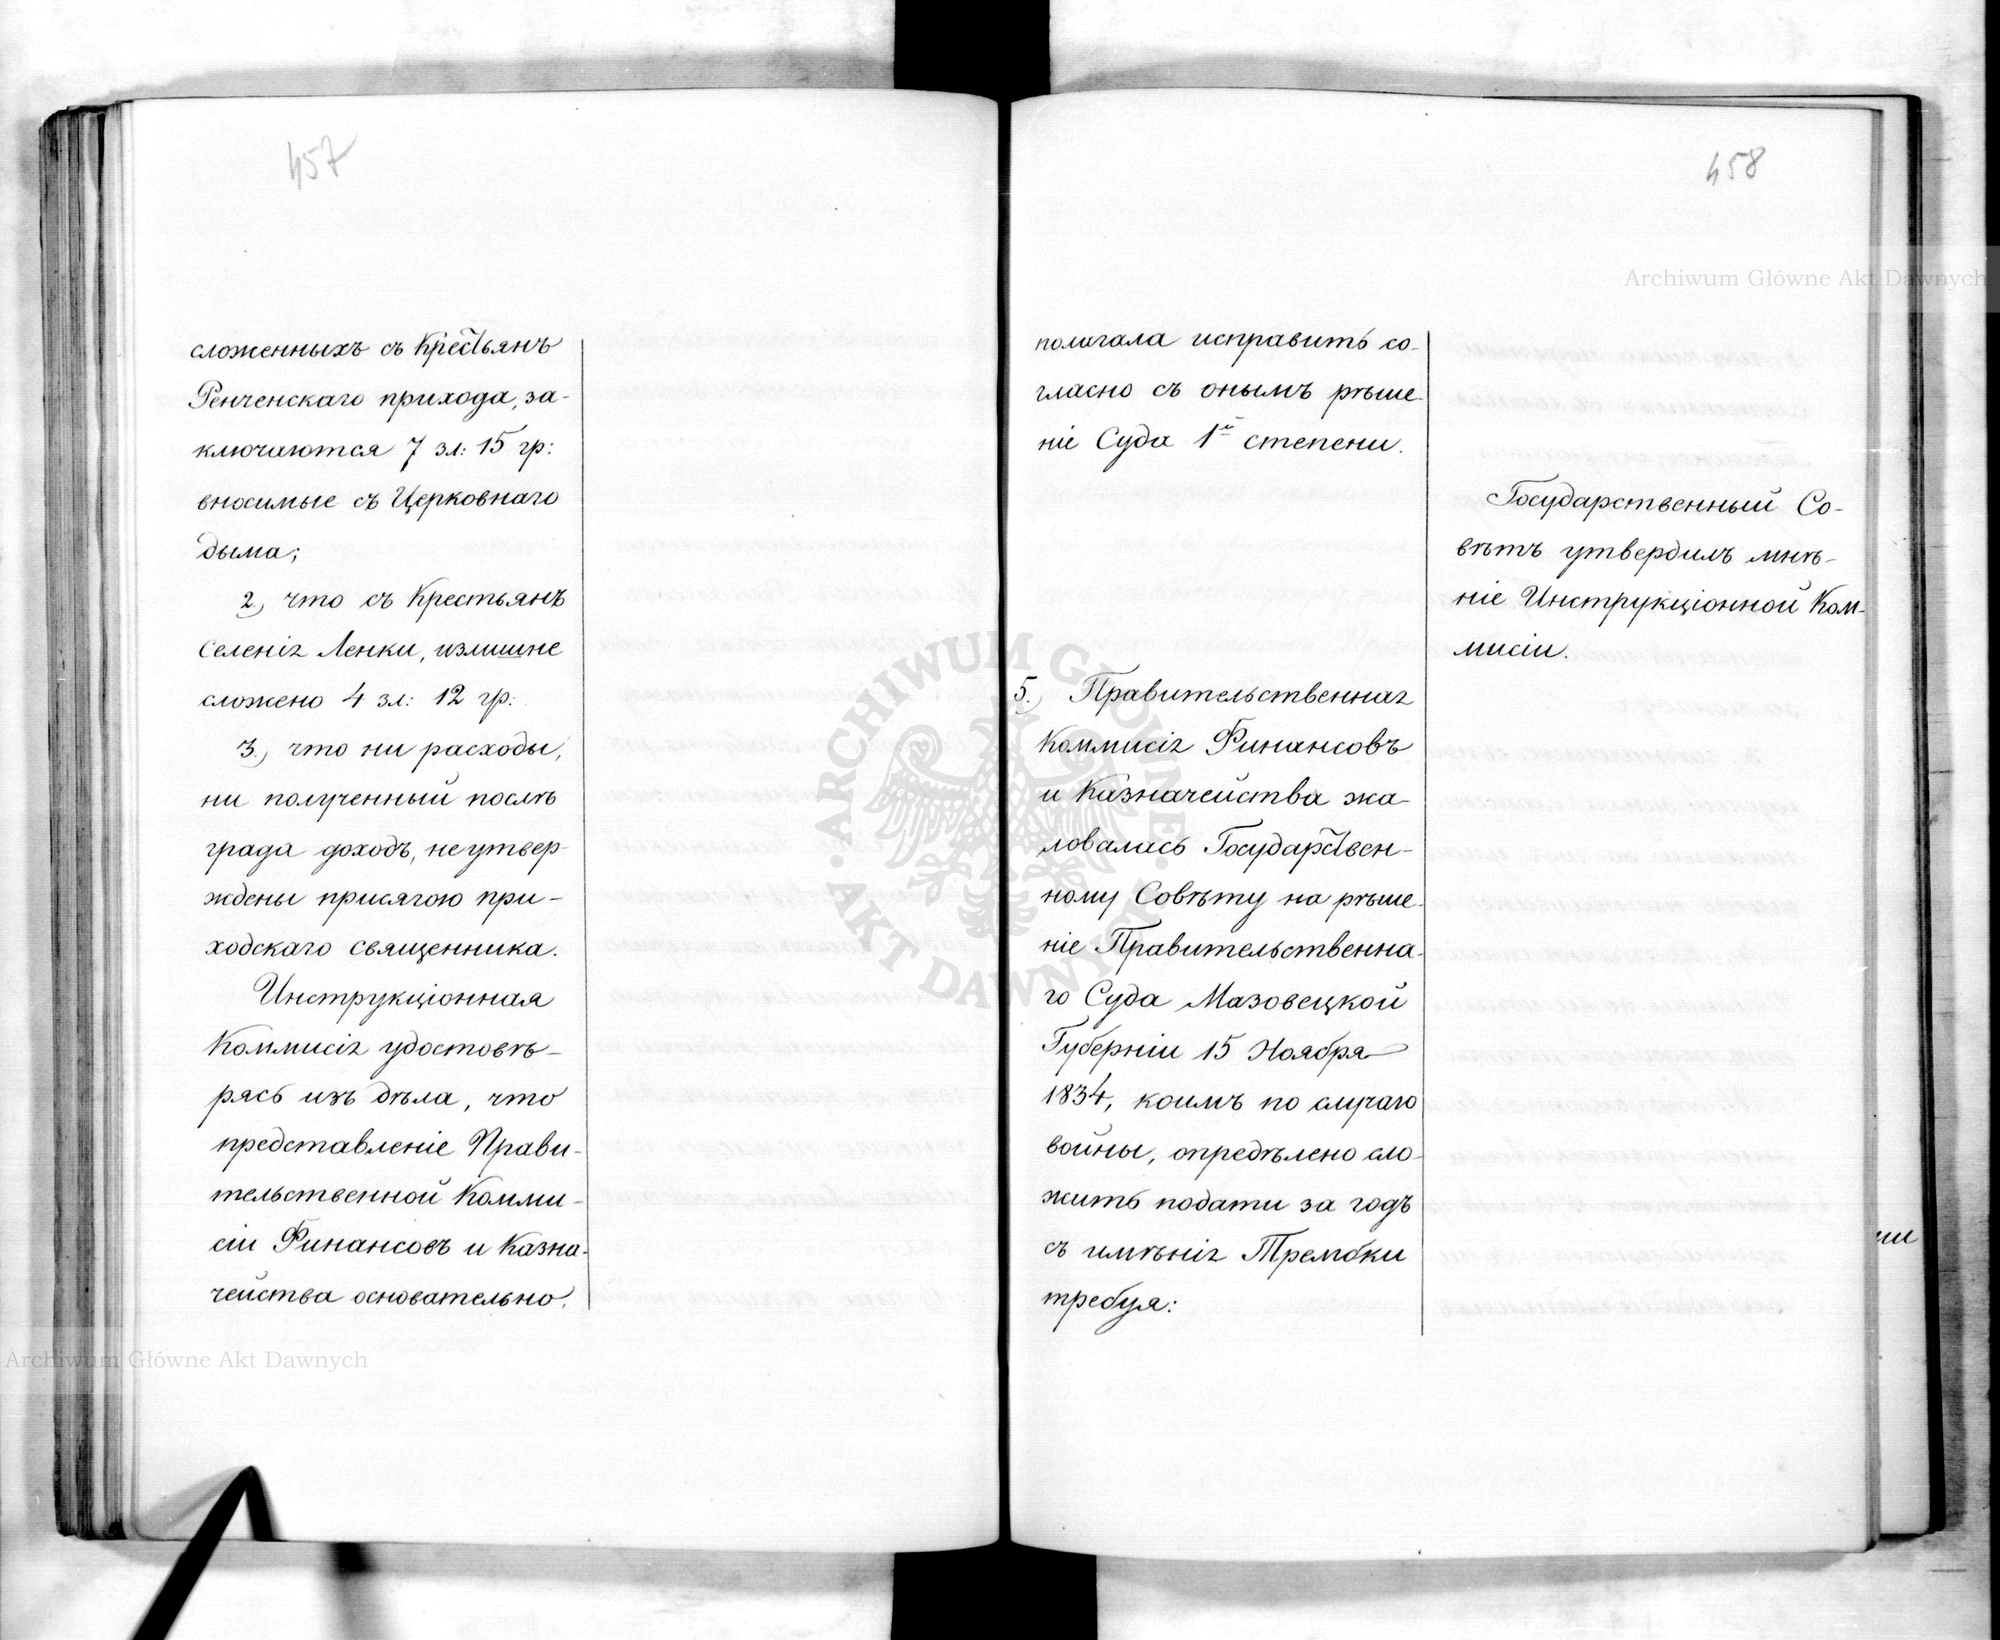 457
сложенныхъ съ Крестьянъ
Ренченскаго прихода, за-
ключаются 7 зл: 15 гр:
вносимые съ Церковнаго
дыма;
2, что съ Крестьянъ
селенія Ленки, излишне
сложено 4 зл: 12 гр:
3, что ни расходы,
ни полученный послѣ
града доходъ, не утвер-
ждены присягою при-
ходскаго священника.
Инструкціонная
Коммисія удостовѣ-
рясь изъ дѣла, что
представленіе Прави-
тельственной Комми-
сіи Финансовъ и Казна-
чейства основательно,
458
полагала исправить со-
гласно съ онымъ рѣше-
ніе Суда 1й степени.
Государственный Со-
вѣтъ утвердилъ мнѣ-
ніе Инструкціонной Ком-
мисіи.
5, Правительственная
Коммисія Финансовъ
и Казначейства жа-
ловалась Государствен-
ному Совѣту на рѣше-
ніе Правительственна-
го Суда Мазовецкой
Губерніи 15 Ноября
1834, коимъ по случаю
войны, опредѣлено сло-
жить подати за годъ
съ имѣнія Трембки
требуя:
Archiwum Główne Akt Dawnych
Archiwum Główne Akt Dawnych
ARCHIWUM GŁÓWNE AKT DAWNYCH